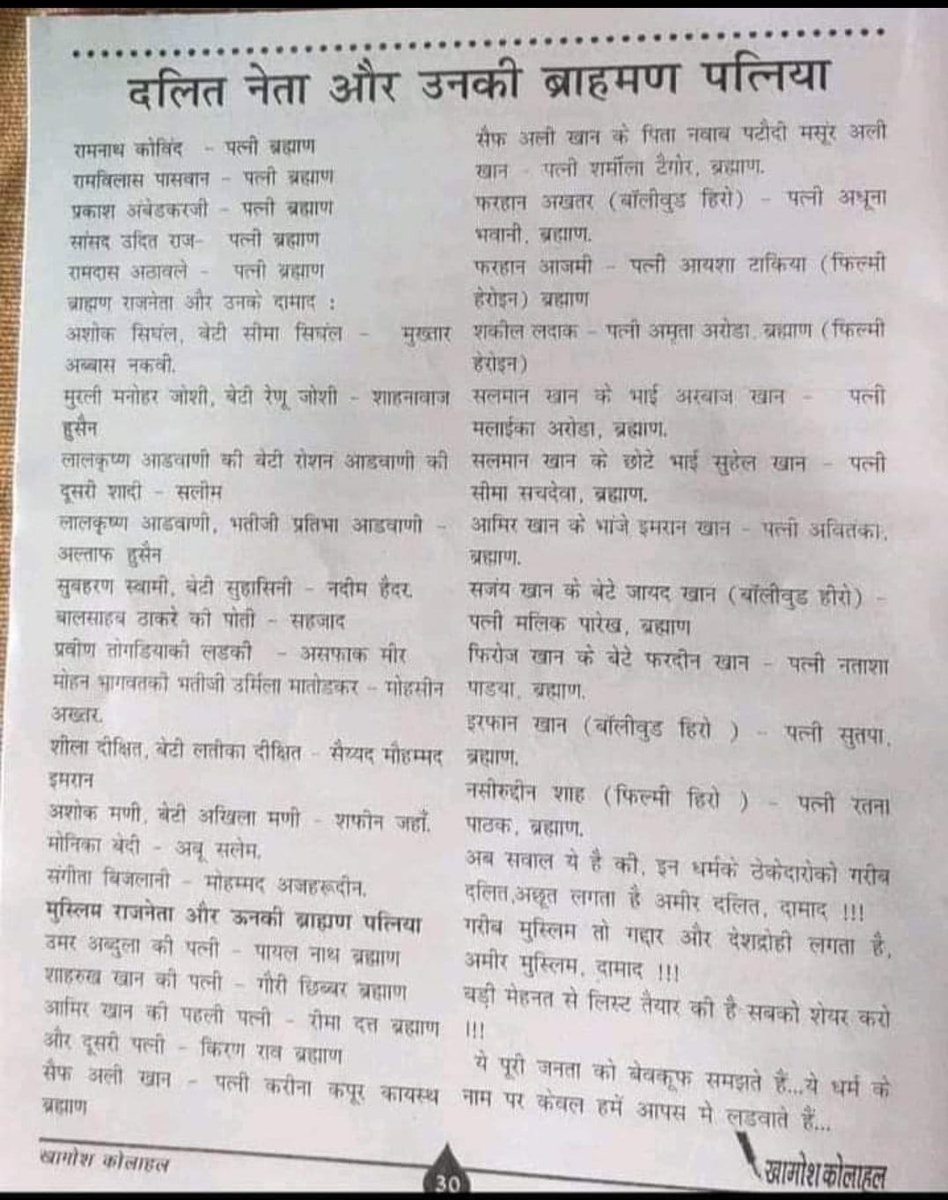 दलित नेता और उनकी ब्राहमण पत्निया
रामनाथ कोविंद - पत्नी ब्रह्माण
रामविलास पासवान - पत्नी ब्रह्माण
प्रकाश अंबेडकरजी - पत्नी ब्रह्माण
सांसद उदित राज- पत्नी ब्रह्माण
रामदास अठावले - पत्नी ब्रह्माण
ब्राह्मण राजनेता और उनके दामाद :
अशोक सिघंल, बेटी सीमा सिघंल - मुख्तार
अब्बास नकवी.
मुरली मनोहर जोशी, बेटी रेणू जोशी - शाहनावाज
हुसैन
लालकृष्ण आडवाणी की बेटी रोशन आडवाणी की
दूसरी शादी - सलीम
लालकृष्ण आडवाणी, भतीजी प्रतिभा आडवाणी -
अल्ताफ हुसैन
सुबहरण स्वामी, बेटी सुहासिनी - नदीम हैदर.
बालसाहब ठाकरे की पोती - सहजाद
प्रवीण तोगडियाकी लडकी - असफाक मीर
मोहन भागवतकी भतीजी उर्मिला मातोडकर - मोहसीन
अख्तर.
शीला दीक्षित, बेटी लतीका दीक्षित - सैय्यद मौहम्मद
इमरान
अशोक मणी, बेटी अखिला मणी - शफीन जहाँ.
मोनिका बेदी - अबू सलेम.
संगीता बिजलानी - मोहम्मद अजहरूदीन.
मुस्लिम राजनेता और ऊनकी ब्राह्मण पत्निया
उमर अब्दुला की पत्नी - पायल नाथ ब्रह्माण
शाहरुख खान की पत्नी - गौरी छिब्बर ब्रह्माण
आमिर खान की पहली पत्नी - रीमा दत्त ब्रह्माण
और दूसरी पत्नी - किरण राव ब्रह्माण
सैफ अली खान - पत्नी करीना कपूर कायस्थ
ब्रह्माण
सैफ अली खान के पिता नवाब पटौदी मसूंर अली
खान - पत्नी शर्मीला टैगोर, ब्रह्माण.
फरहान अखतर (बॉलीवुड हिरो) - पत्नी अधूना
भवानी, ब्रह्माण.
फरहान आजमी - पत्नी आयशा टाकिया (फिल्मी
हेरोइन) ब्रह्माण
शकील लदाक - पत्नी अमृता अरोडा, ब्रह्माण (फिल्मी
हेरोइन)
सलमान खान के भाई अरबाज खान - पत्नी
मलाईका अरोडा, ब्रह्माण.
सलमान खान के छोटे भाई सुहेल खान - पत्नी
सीमा सचदेवा, ब्रह्माण.
आमिर खान के भांजे इमरान खान - पत्नी अवितंका,
ब्रह्माण.
सजंय खान के बेटे जायद खान (बॉलीवुड हीरो) -
पत्नी मलिक पारेख, ब्रह्माण
फिरोज खान के बेटे फरदीन खान - पत्नी नताशा
पाडया, ब्रह्माण.
इरफान खान (बॉलीवुड हिरो ) - पत्नी सुतपा,
ब्रह्माण.
नसीरुद्दीन शाह (फिल्मी हिरो ) - पत्नी रतना
पाठक, ब्रह्माण.
अब सवाल ये है की, इन धर्मके ठेकेदारोको गरीब
दलित,अछूत लगता है अमीर दलित, दामाद !!!
गरीब मुस्लिम तो गद्दार और देशद्रोही लगता है,
अमीर मुस्लिम, दामाद !!!
बड़ी मेहनत से लिस्ट तैयार की है सबको शेयर करो
!!!
ये पूरी जनता को बेवकूफ समझते हैं...ये धर्म के
नाम पर केवल हमें आपस मे लडवाते हैं...
खामोश कोलाहल
30
खामोश कोलाहल